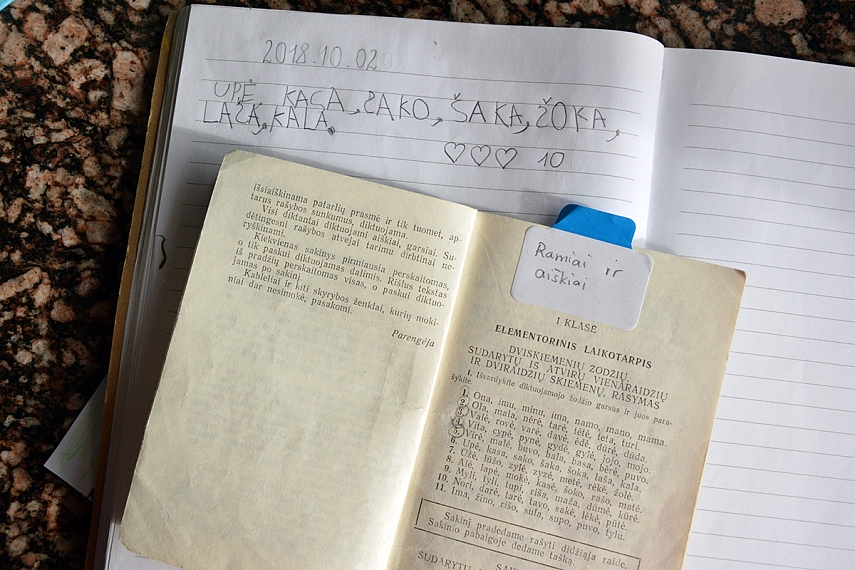 2018.10.02
UPĖ KASA, SAKO, ŠAKA, ŽOKA,
LAŠA, KALA.
♡♡♡ 10
išsiaiškinama patarlių prasmė ir tik tuomet, ap-
tarus rašybos sunkumus, diktuojama.
Visi diktantai diktuojami aiškiai, garsiai. Su-
dėtingesni rašybos atvejai tarimu dirbtinai ne-
ryškinami.
Kiekvienas sakinys pirmiausia perskaitomas,
o tik paskui diktuojamas dalimis. Rišlus tekstas
iš pradžių perskaitomas visas, o paskui diktuo-
jamas po sakinį.
Kableliai ir kiti skyrybos ženklai, kurių moki-
niai dar nesimokė, pasakomi.
Parengėja
Ramiai ir
aiškiai
I KLASĖ
ELEMENTORINIS LAIKOTARPIS
DVISKIEMENIŲ ŽODŽIŲ,
SUDARYTŲ IŠ ATVIRŲ VIENARAIDŽIŲ
IR DVIRAIDŽIŲ SKIEMENŲ, RAŠYMAS
1. Išvardykite diktuojamojo žodžio garsus ir juos para-
šykite.
1. Ona, imu, minu, ima, namo, mano, mama.
2. Ola, mala, nėrė, tarė, tėtė, teta, turi.
3. Valė, rovė, varė, davė, ėdė, dūrė, dūda.
4. Vita, cypė, pynė, gydė, gylė, jojo, mojo.
5. Virė, malė, buvo, bala, basa, bėrė, puvo.
6. Upė, kasa, sako, šaka, šoka, laša, kala.
7. Ūžė, lūžo, zylė, zyzė, metė, rėkė, žolė.
8. Alė, lapė, mokė, kasė, šoko, rašo, matė.
9. Myli, tyli, lupi, riša, maža, dūmė, kūrė.
10. Nori, darė, tarė, tavo, sakė, lėkė, pūtė.
11. Ima, žino, rišo, sula, supo, puvo, tylu.
Sakinį pradedame rašyti didžiąja raide.
Sakinio pabaigoje dedame tašką.